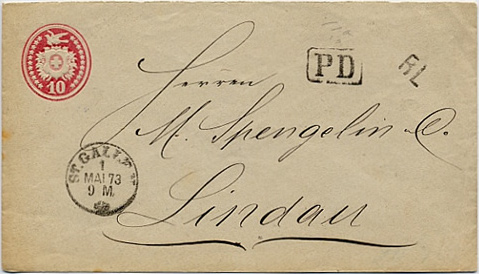 10
PD
RL
Herren
M. Spengelin & C.
Lindau
ST. GALLEN
1
MAI 73
9 M.